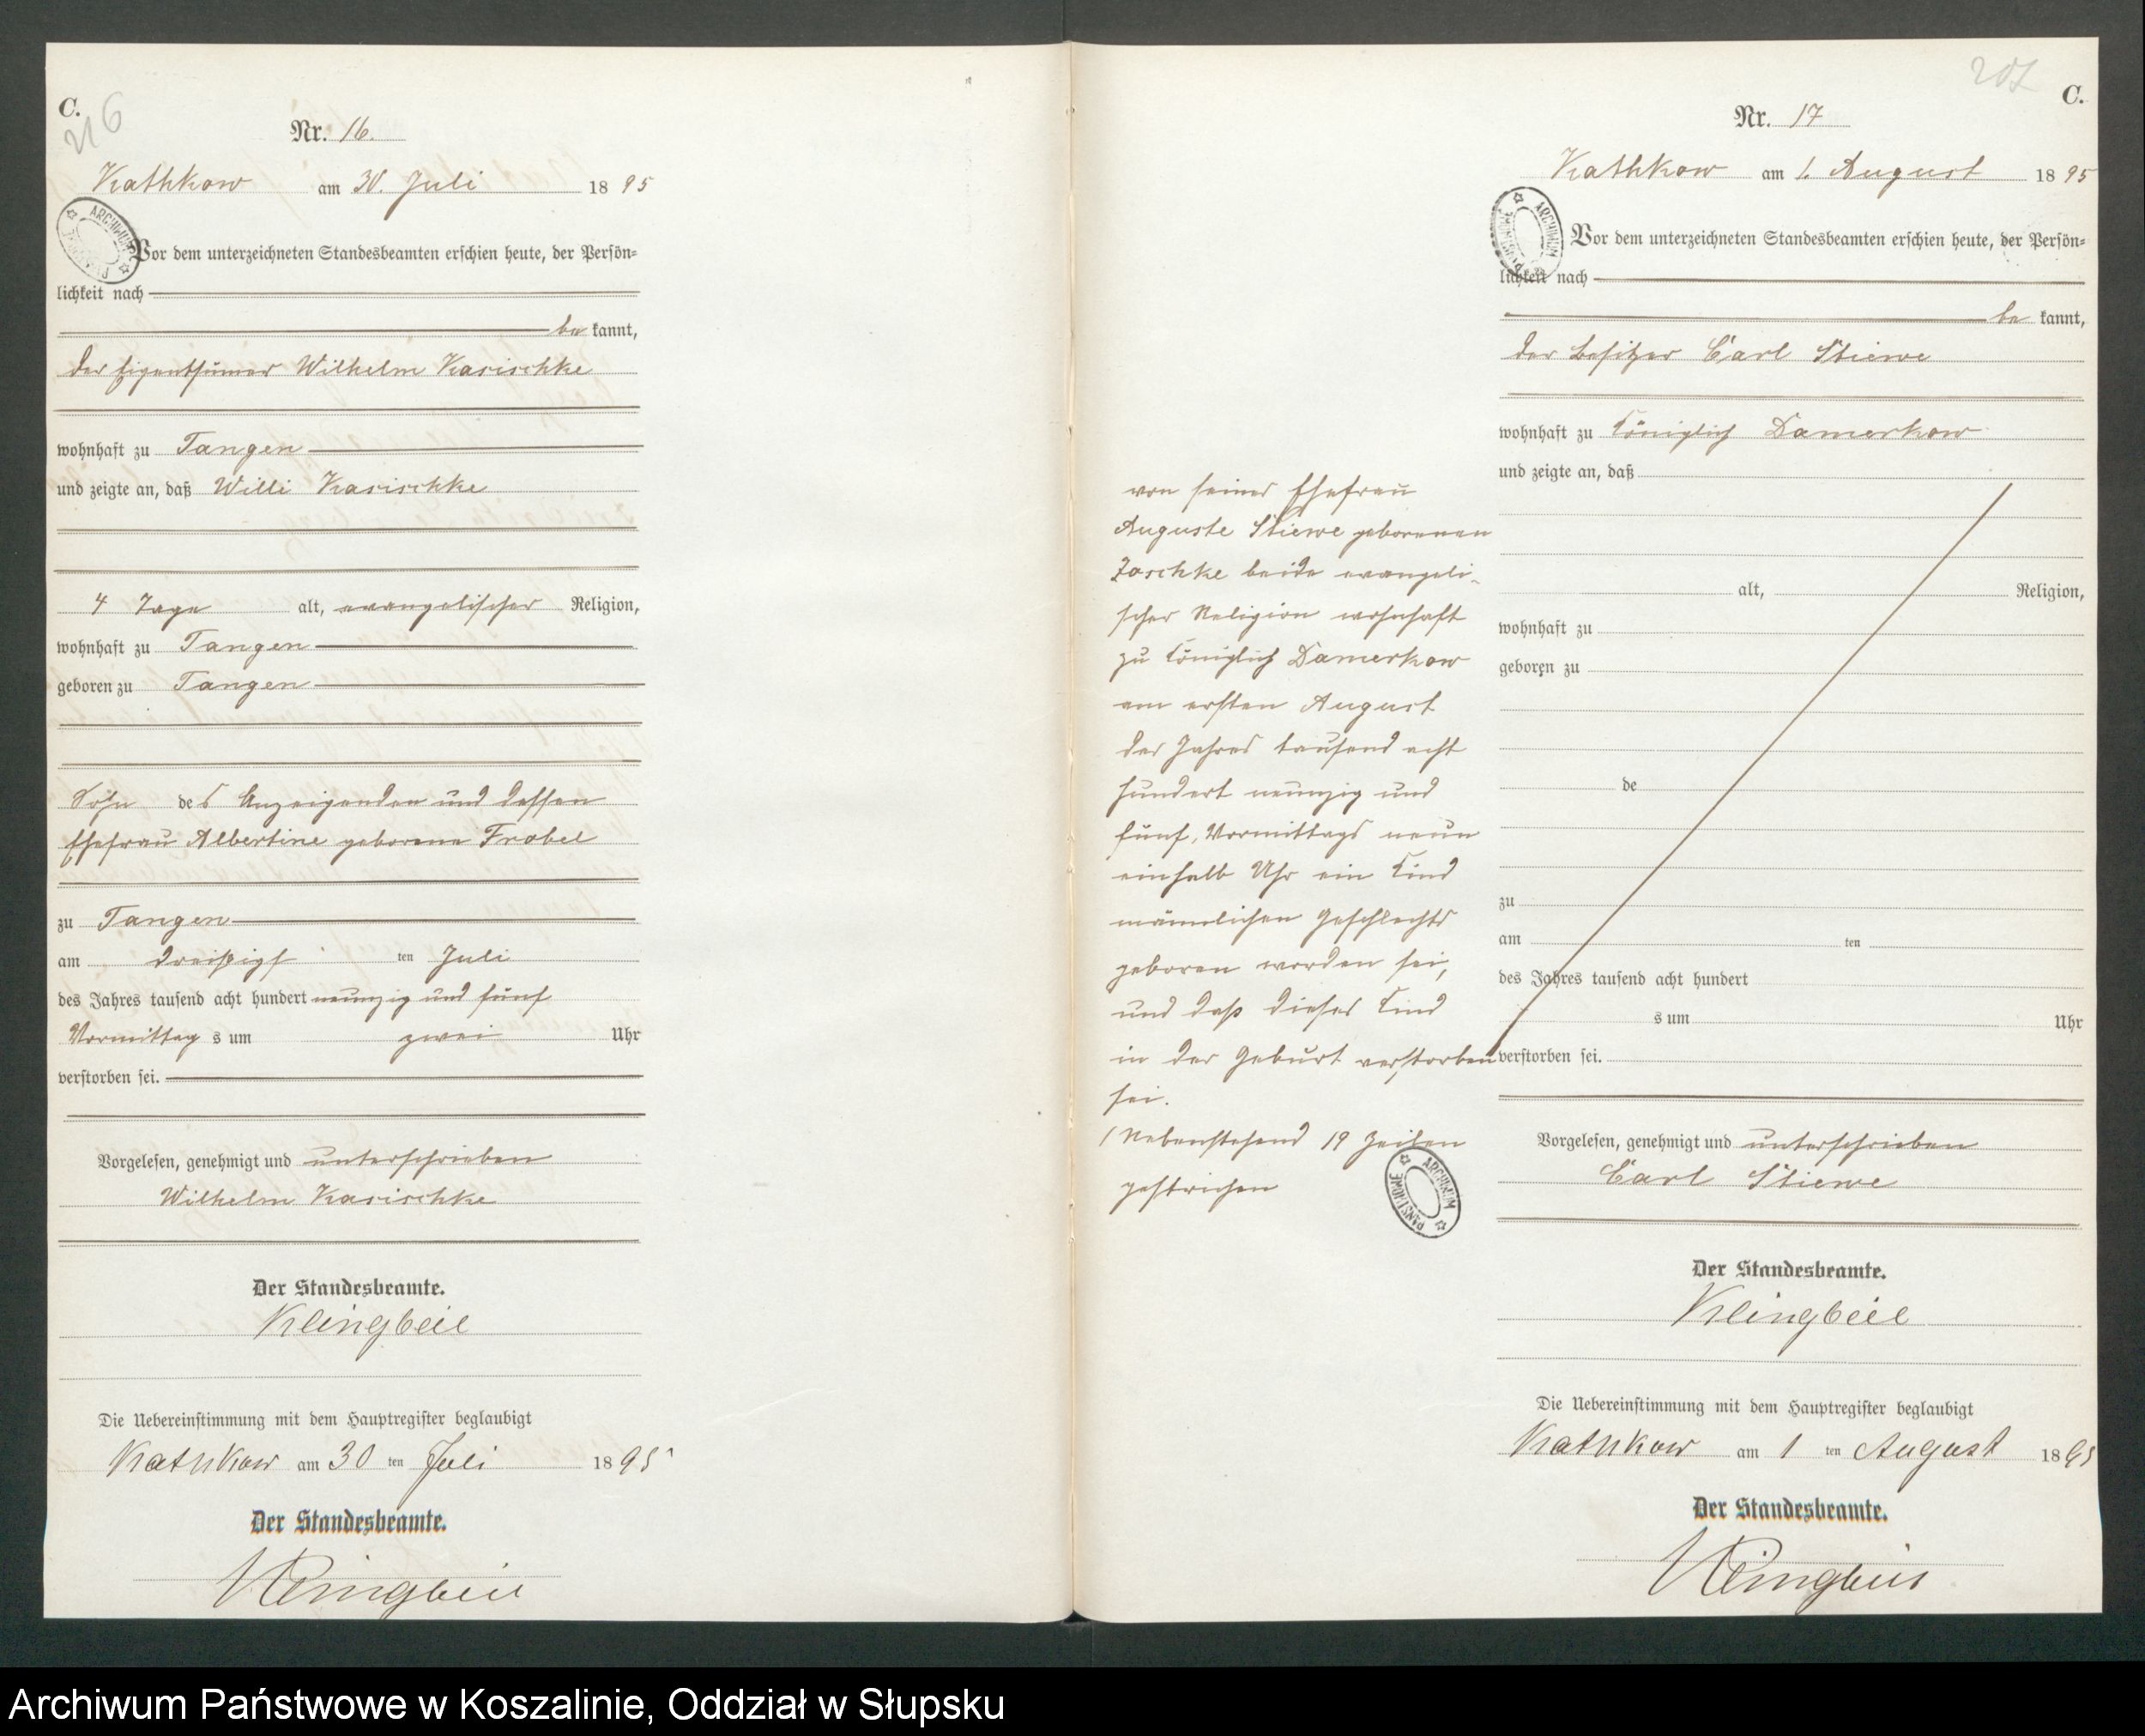 C.
216
Nr. 16.
Kathkow am 30. Juli 1895
Vor dem unterzeichneten Standesbeamten erschien heute, der Persön-
lichkeit nach
be kannt,
der Eigenthümer Wilhelm Kasischke
wohnhaft zu Tangen
und zeigte an, daß Willi Kasischke
4 Tage alt, evangelischer Religion,
wohnhaft zu Tangen
geboren zu Tangen
Sohn des Anzeigenden und dessen
Ehefrau Albertine geborene Frobel
zu Tangen
am dreißigsten Juli
des Jahres tausend acht hundert neunzig und fünf
Vormittags um zwei Uhr
verstorben sei.
Vorgelesen, genehmigt und unterschrieben
Wilhelm Kasischke
Der Standesbeamte.
Klingbeil
Die Uebereinstimmung mit dem Hauptregister beglaubigt
Kathkow am 30 ten Juli 1895
Der Standesbeamte.
Klingbeil
C.
Nr. 17
Kathkow am 1. August 1895
Vor dem unterzeichneten Standesbeamten erschien heute, der Persön-
lichkeit nach
be kannt,
der Besitzer Carl Stiewe
wohnhaft zu Königlich Damerkow
und zeigte an, daß
alt, Religion,
wohnhaft zu
geboren zu
de
zu
am ten
des Jahres tausend acht hundert
s um Uhr
verstorben sei.
von seiner Ehefrau
Auguste Stiewe geborenen
Zaschke beide evangeli-
scher Religion wohnhaft
zu Königlich Damerkow
am ersten August
des Jahres tausend acht
hundert neunzig und
fünf, Vormittags neun
einhalb Uhr ein Kind
männlichen Geschlechts
geboren worden sei,
und daß dieses Kind
in der Geburt verstorben
sei.
Nebenstehend 19 Zeilen
gestrichen
Vorgelesen, genehmigt und unterschrieben
Carl Stiewe
Der Standesbeamte.
Klingbeil
Die Uebereinstimmung mit dem Hauptregister beglaubigt
Kathkow am 1 ten August 1895
Der Standesbeamte.
Klingbeil
ARCHIWUM PAŃSTWOWE
Archiwum Państwowe w Koszalinie, Oddział w Słupsku